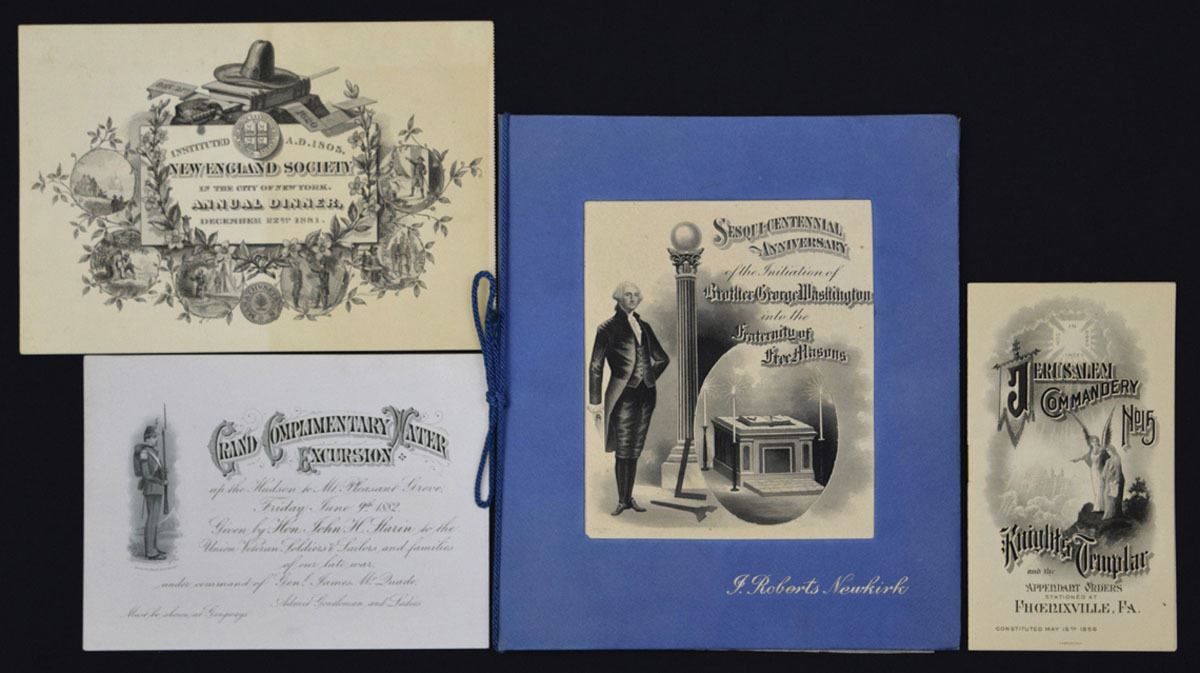 INSTITUTED A.D. 1805.
NEW ENGLAND SOCIETY
IN THE CITY OF NEW YORK.
ANNUAL DINNER,
DECEMBER 22ND 1881.
GRAND COMPLIMENTARY WATER
EXCURSION
up the Hudson to Mt. Pleasant Grove,
Friday June 9th 1882
Given by Hon. John H. Starin to the
Union Veteran Soldiers & Sailors, and families
of our late war,
under command of Genl. James Mc.Quade.
Admit Gentleman and Ladies
Must be shown at Gangways
SESQUI-CENTENNIAL
ANNIVERSARY
of the Initiation of
Brother George Washington
into the
Fraternity of
Free Masons
J. Roberts Newkirk
JERUSALEM
COMMANDERY
No. 15
Knights Templar
and the
APPENDANT ORDERS
STATIONED AT
PHOENIXVILLE, PA.
CONSTITUTED MAY 15TH 1856